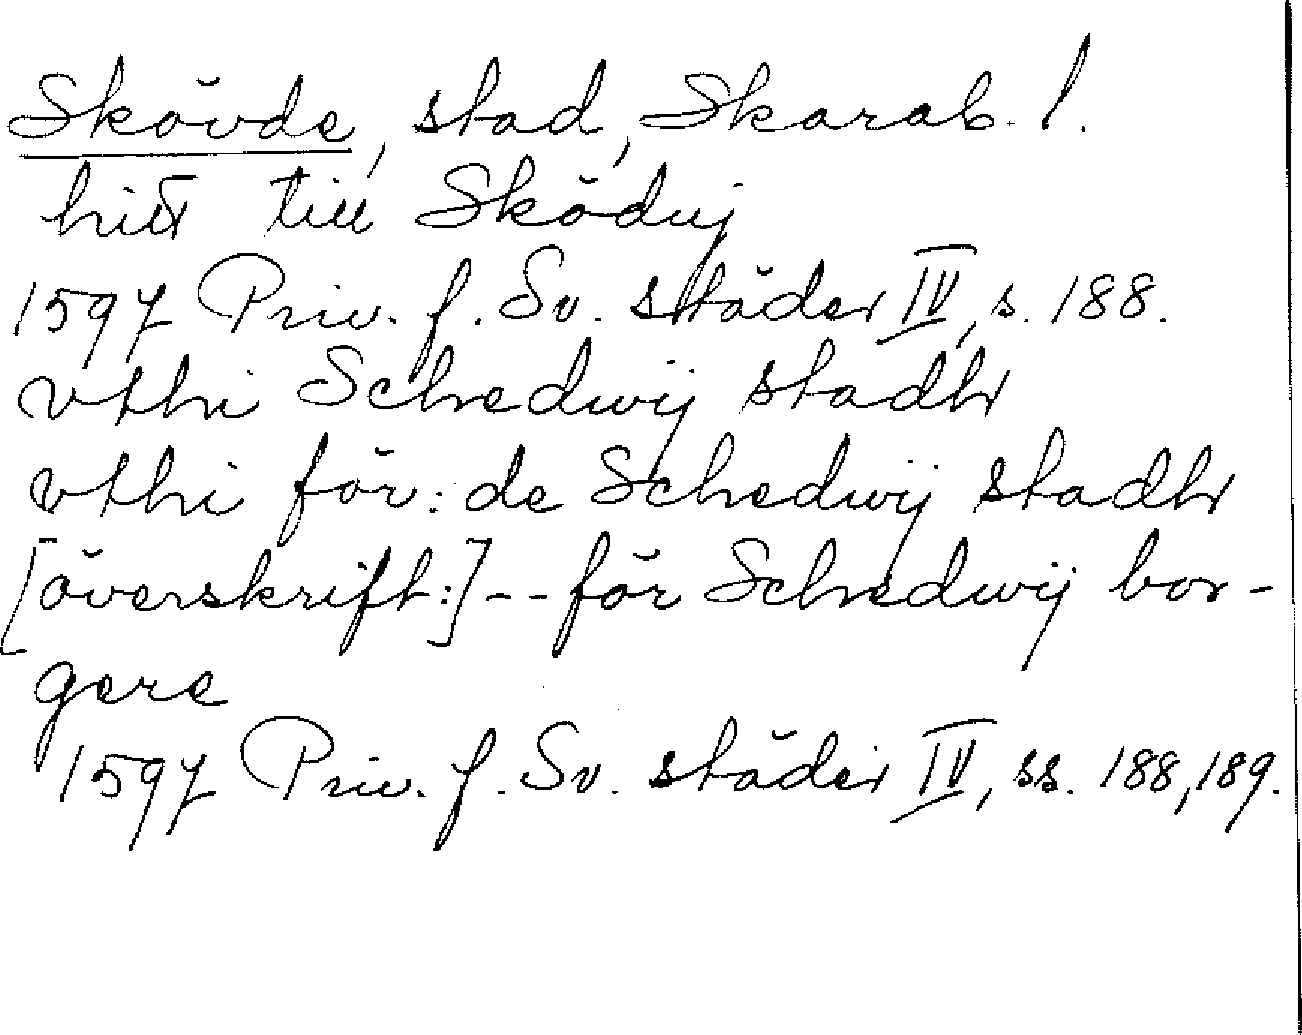 Skövde, stad, Skarab. l.
hitt till Sköduj
1597 Priv. f. Sv. städer IV, s. 188.
vthi Schedwij stadh
vthi för: de Schedwij stadh
[överskrift:] -- för Schedwij bor-
gere
1597 Priv. f. Sv. städer IV, ss. 188, 189.